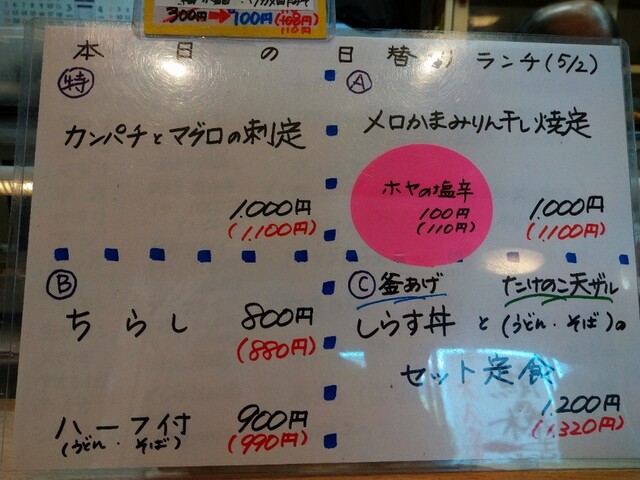 300円→100円(108円)
110円
本日の日替りランチ(5/2)
特
カンパチとマグロの刺定
1.000円
(1.100円)
A
メロかまみりん干し焼定
ホヤの塩辛
100円
(110円)
1.000円
(1.100円)
B
ちらし 800円
(880円)
ハーフ付 900円
(うどん・そば) (990円)
C 釜あげ たけのこ天ザル
しらす丼と(うどん・そば)の
セット定食
1.200円
(1.320円)